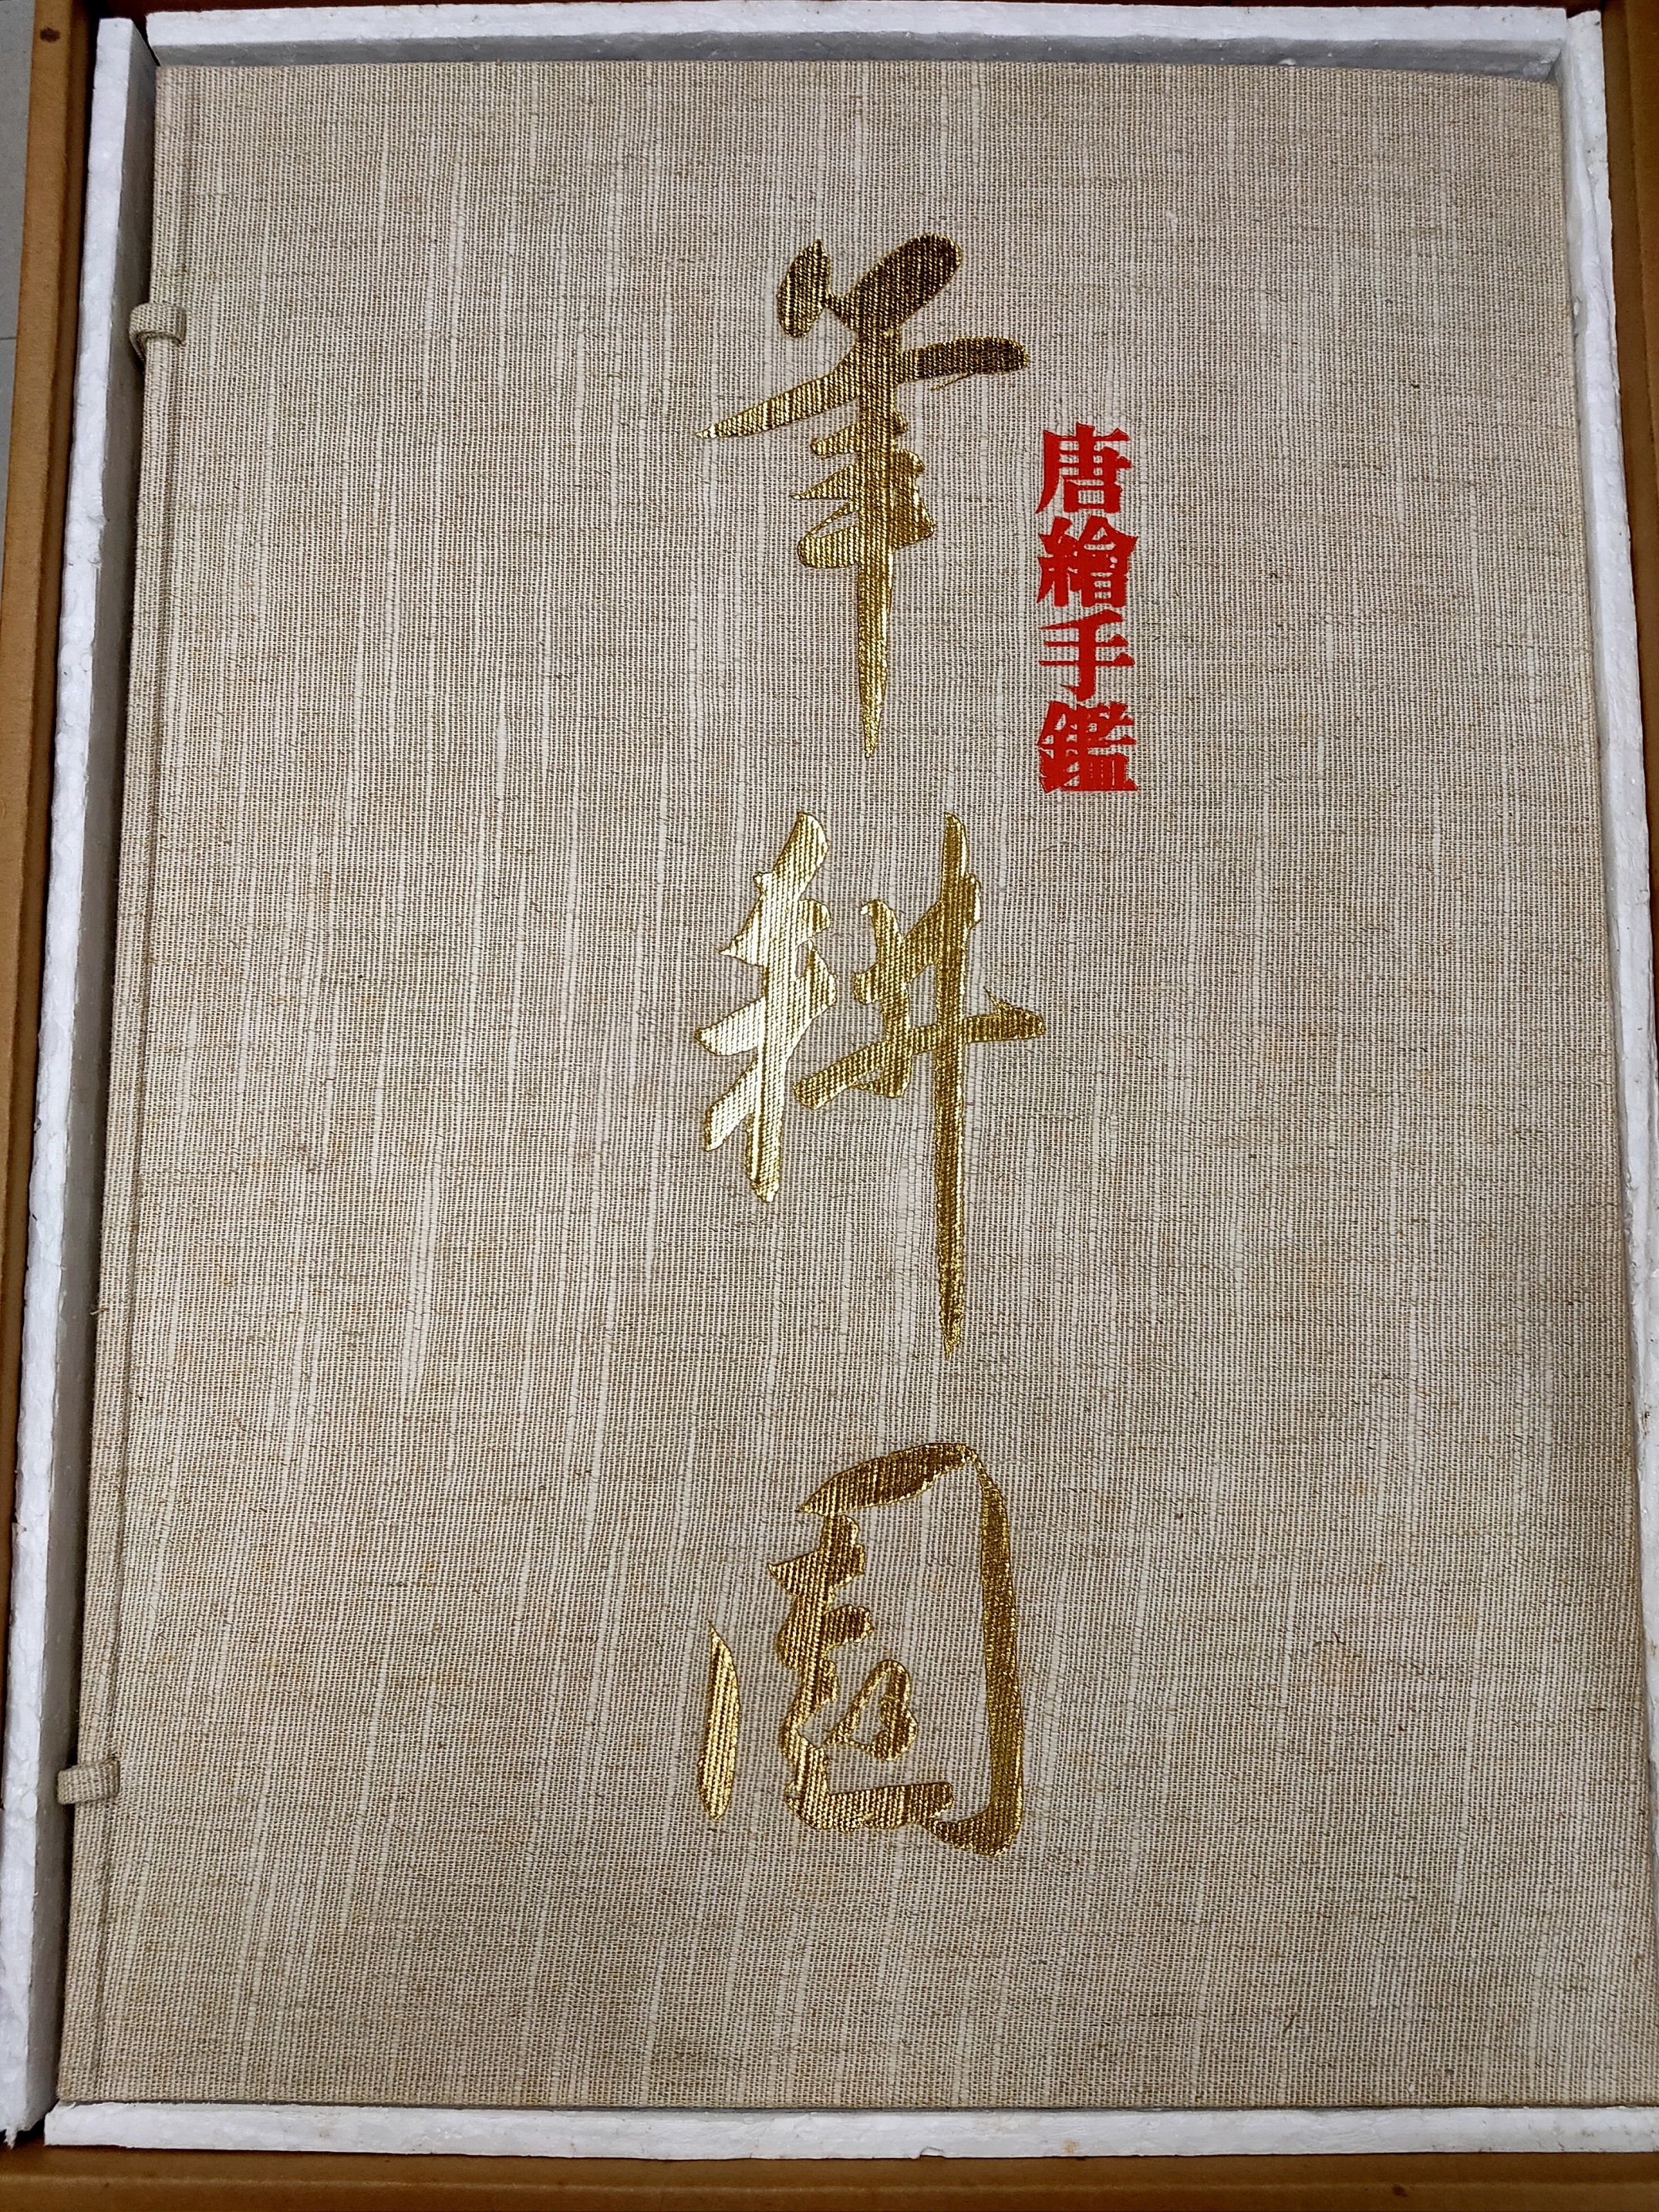 唐繪手鑑
筆耕園